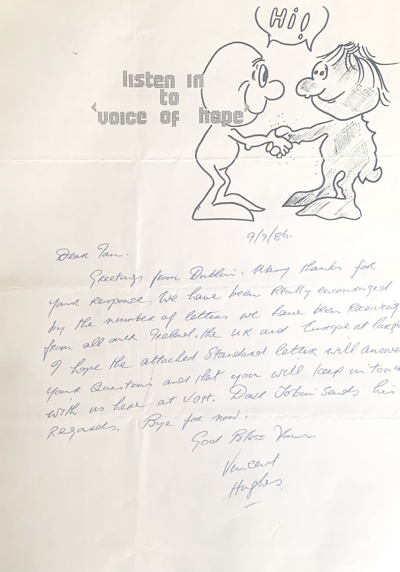 Hi!
listen in
to
"voice of hope"
9/9/86.
Dear Ian.
Greetings from Dublin. Many thanks for
your response. We have been really encouraged
by the number of letters we have been receiving
from all over Ireland, the UK and Europe at large
I hope the attached Standard letter will answer
your Questions and that you will keep in touch
with us here at VOH. Dave Tobin sends his
Regards. Bye for now.
God Bless
Vincent
Hughes.